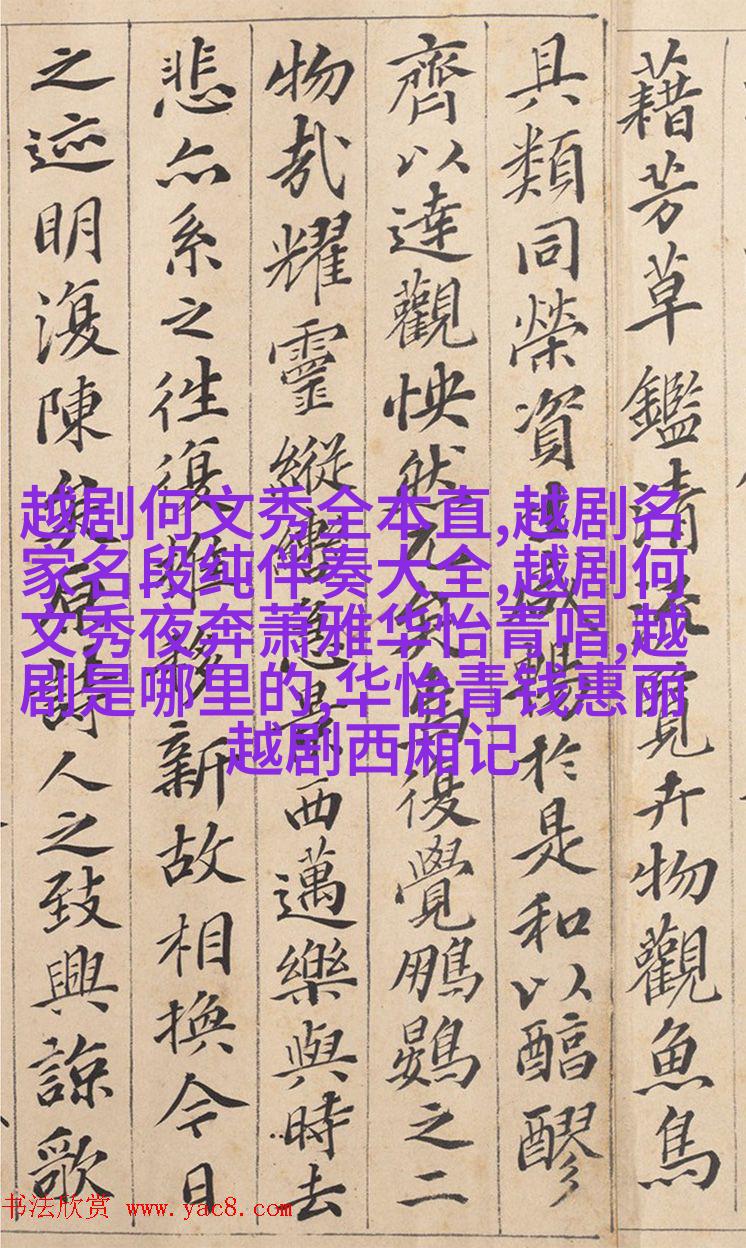 藉芳草鑑清流覽卉物觀魚鳥
具類同榮資生咸暢於是和以醇醪
齊以達觀怏然兀矣焉復覺鵬鷃之二
物哉耀靈縱轡急景西邁樂與時去
悲亦系之往復推移新故相換今日
之迹明復陳矣原詩人之致興諒歌
越剧何文秀全本直,越剧名
家名段纯伴奏大全,越剧何
文秀夜奔萧雅华怡青唱,越
剧是哪里的,华怡青钱惠丽
越剧西厢记
书法欣赏 www.yac8.com